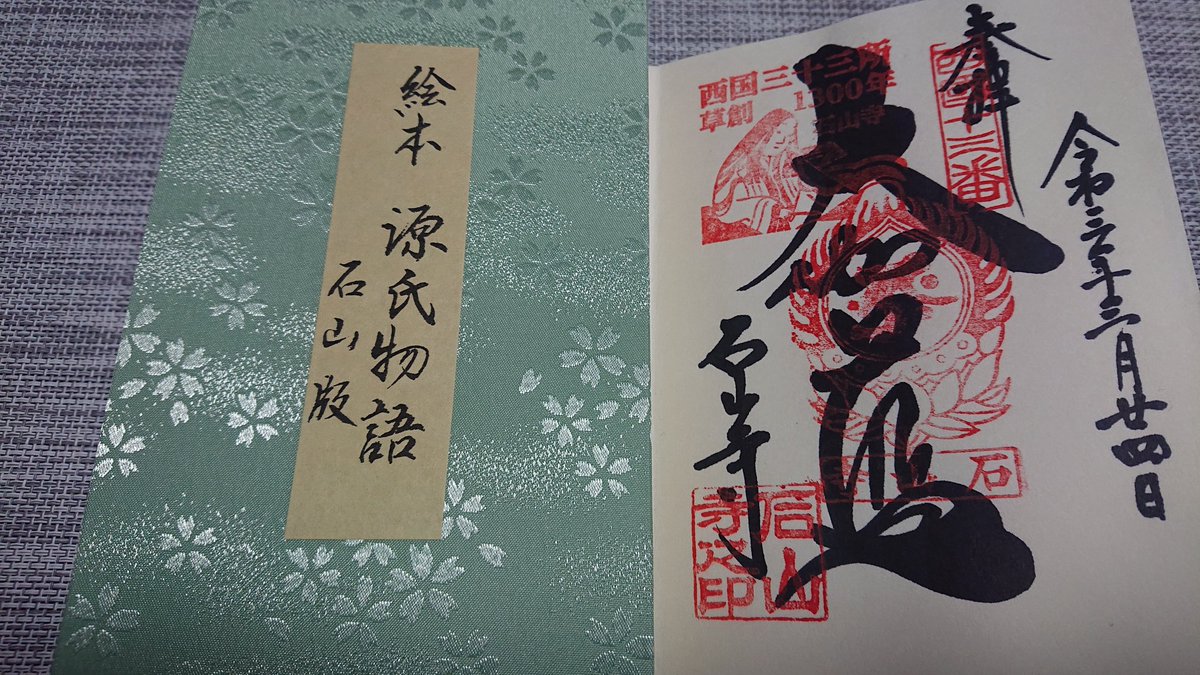 絵本 源氏物語
石山版
奉拝
令和三年三月廿四日
大伽藍
石山寺
西国十三番
西国三十三所
草創1300年
石山寺
石山寺
石山寺之印